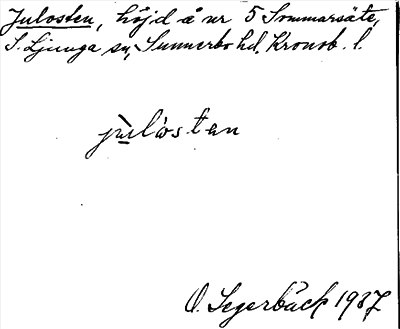 Julosten, höjd å nr 5 Sommarsäte,
S. Ljunga sn, Sunnerbo hd. Kronob. l.
jùlósten
O. Segerbäck 1937